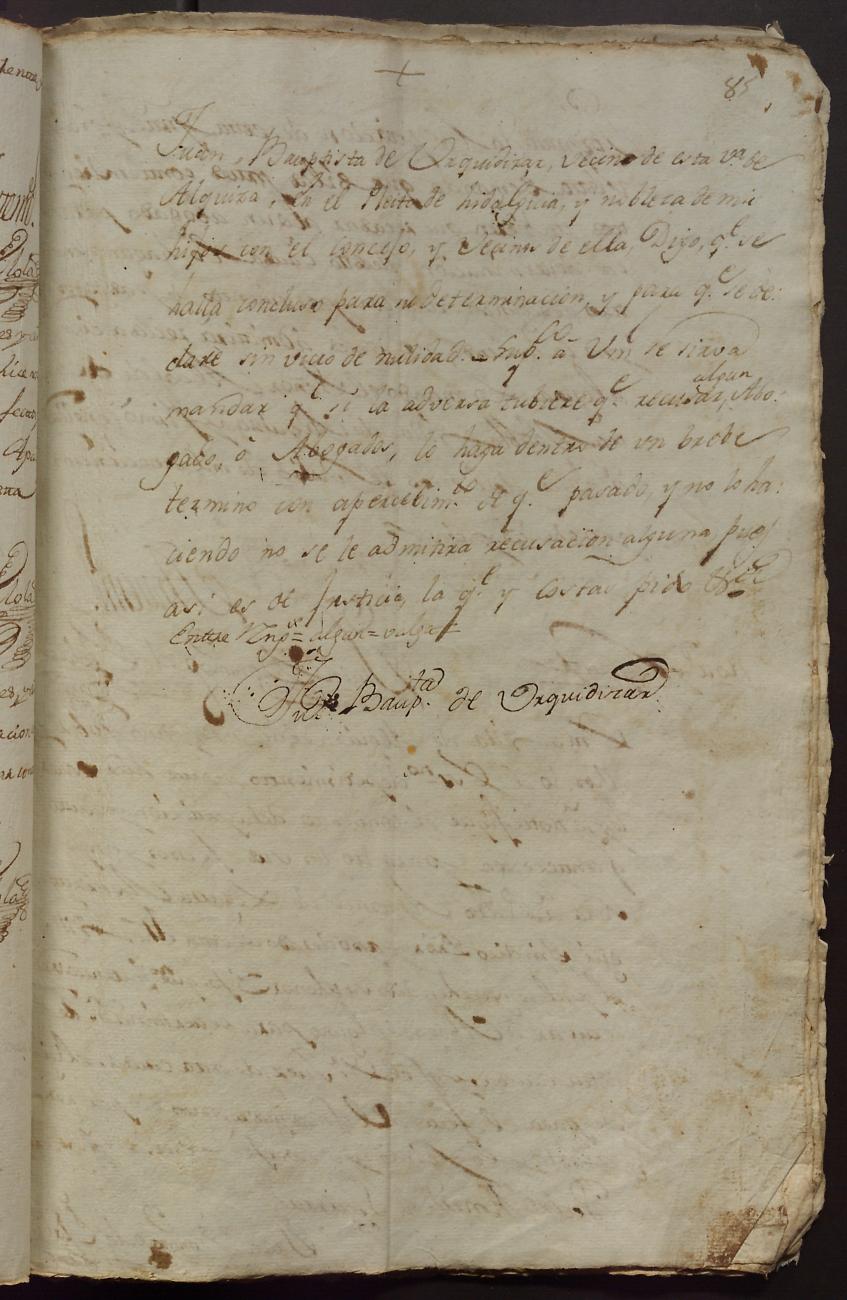 85
Juan, Bauptista de Urquidizar, vecino de esta va. de
Alquiza, en el Pleito de hidalguia, y nobleza de mis
hijos con el Concejo, y vecinos de ella, Digo, qe. se
halla concluso para su determinacion, y para qe. se de:
clare sin vicio de nulidad. = Supco. a Vm se sirva
mandar qe. si la adversa tubiere qe. recusar, algun Abo:
gado, ó Abogados, lo haga dentro de un brebe
termino con apercebimto. de qe. pasado, y no lo ha:
ciendo no se le admitira recusacion alguna pues
asi es de Justicia, la qe. y Costas pido &cc
Entre Rengs = algun = valga =
Jun. Baupta. de Urquidizar